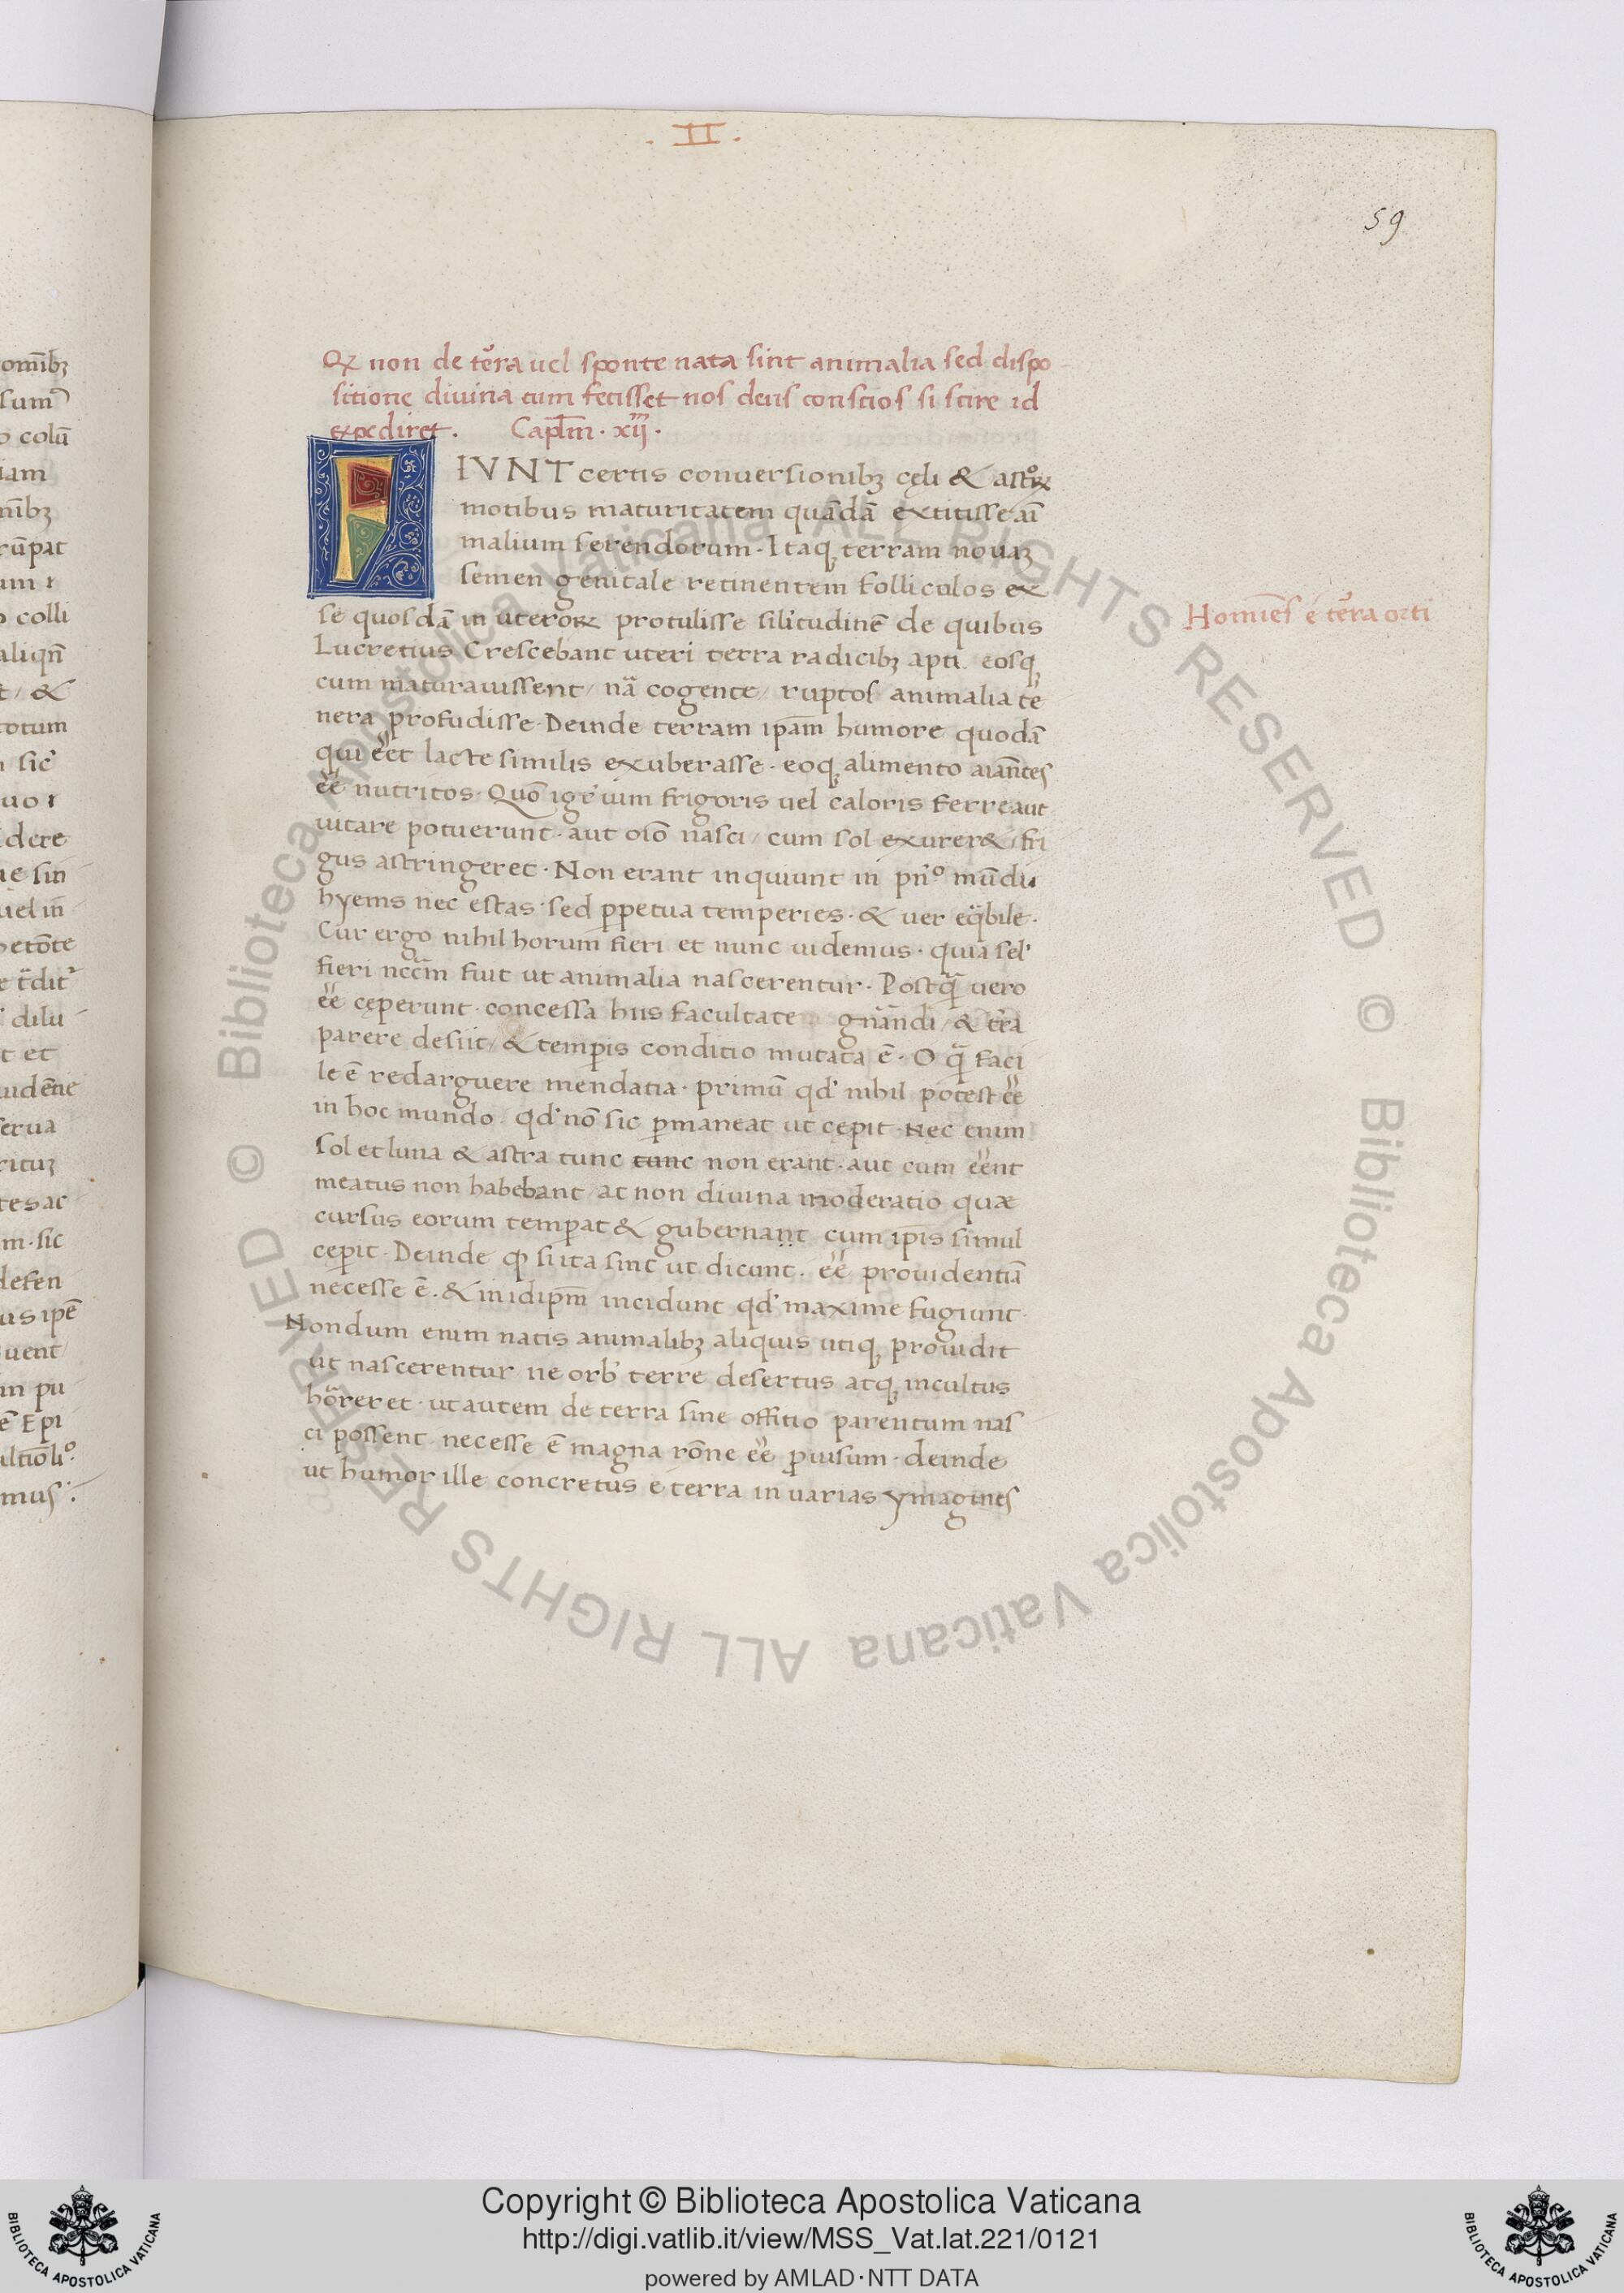 . II .
59
Qꝫ non de tr̃ra uel sponte nata sint animalia sed dispo
sitione diuina cum fecisset nos deus conscios si scire id
expediret . Caplm̃ . xij .
FIVNT certis conuersionibꝫ cęli & astroꝝ
motibus maturitatem quãdã extitisse ai
malium serendorum . Itaqꝫ terram nouaꝫ
semen genitale retinentem folliculos ex
Homines é tr̃ra orti
se quosdã in uteroꝝ protulisse silitudinẽ de quibus
Lucretius Crescebant uteri terra radicibꝫ apti . eosqꝫ
cum maturauissent / nã cogente / ruptos animalia te
nera profudisse . Deinde terram ipam̃ humore quodã
qui eẽt lacte similis exuberasse . eoqꝫ alimento aiantes
eẽ nutritos . Quõ igr̃ uim frigoris uel caloris ferre aut
uitare potuerunt . aut oĩo nasci / cum sol exurer& / fri
gus astringeret . Non erant inquiunt in pñ° mũdi
hyems nec estas . sed ꝑpetua temperies . & uer eq̃bile .
Cur ergo nihil horum fieri et nunc uidemus . quia sel'
fieri nccm̃ fuit ut animalia nascerentur . Postq̃ uero
eẽ cęperunt . concessa hiis facultate gñandi / & tr̃a
parere desiit / & tempis conditio mutata ẽ . O q̃ faci
le ẽ redarguere mendatia . primũ qd' nihil potest eẽ
in hoc mundo . qd' nõ sic ꝑmaneat ut cępit . Nec enim
sol et luna & astra tunc tunc non erant . aut cum eẽnt
meatus non habebant / ac non diuina moderatio quæ
cursus eorum tempat & gubernant cum ipis simul
cepit . Deinde ꝙ si ita sint ut dicunt . eẽ prouidentiã
necesse ẽ . & in idipm̃ incidunt qd' maxime fugiunt .
Nondum enim natis animalibꝫ aliquis utiqꝫ prouidit
ut nascerentur ne orb' terre desertus atqꝫ incultus
hõreret . ut autem de terra sine offitio parentum nas
ci possent necesse ẽ magna rõne eẽ ꝓuisum . deinde
ut humor ille concretus e terra in uarias ymagines
Copyright © Biblioteca Apostolica Vaticana
http://digi.vatlib.it/view/MSS_Vat.lat.221/0121
powered by AMLAD·NTT DATA
BIBLIOTECA APOSTOLICA VATICANA
BIBLIOTECA APOSTOLICA VATICANA
© Biblioteca Apostolica Vaticana ALL RIGHTS RESERVED
© Biblioteca Apostolica Vaticana ALL RIGHTS RESERVED